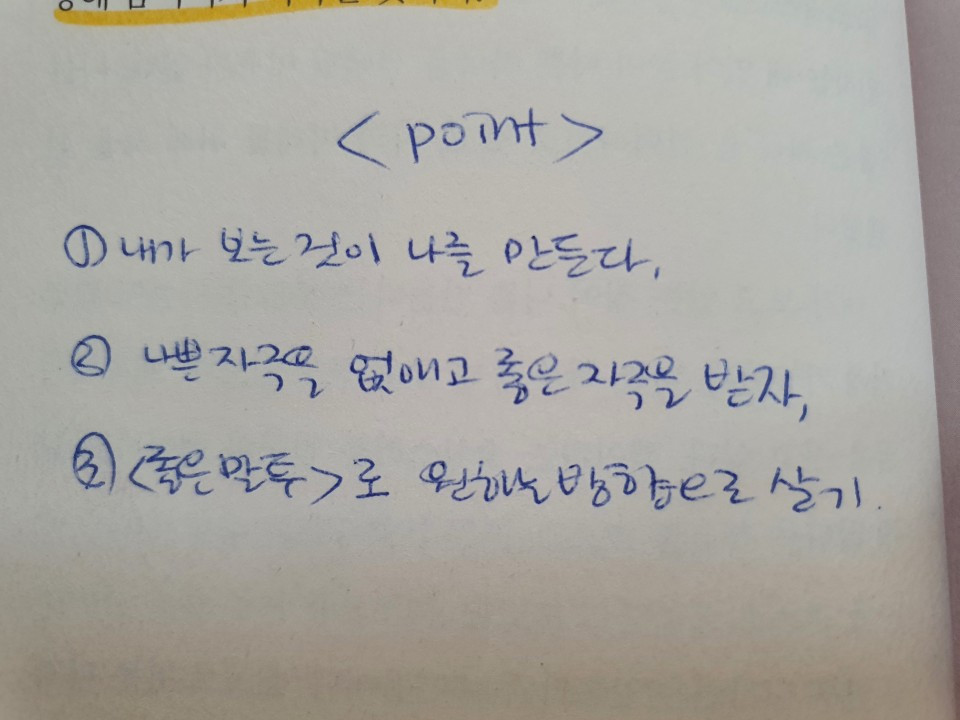 < point >
① 내가 보는 것이 나를 만든다.
② 나쁜 자극을 없애고 좋은 자극을 받자,
③ <좋은 말투>로 원하는 방향으로 살기.